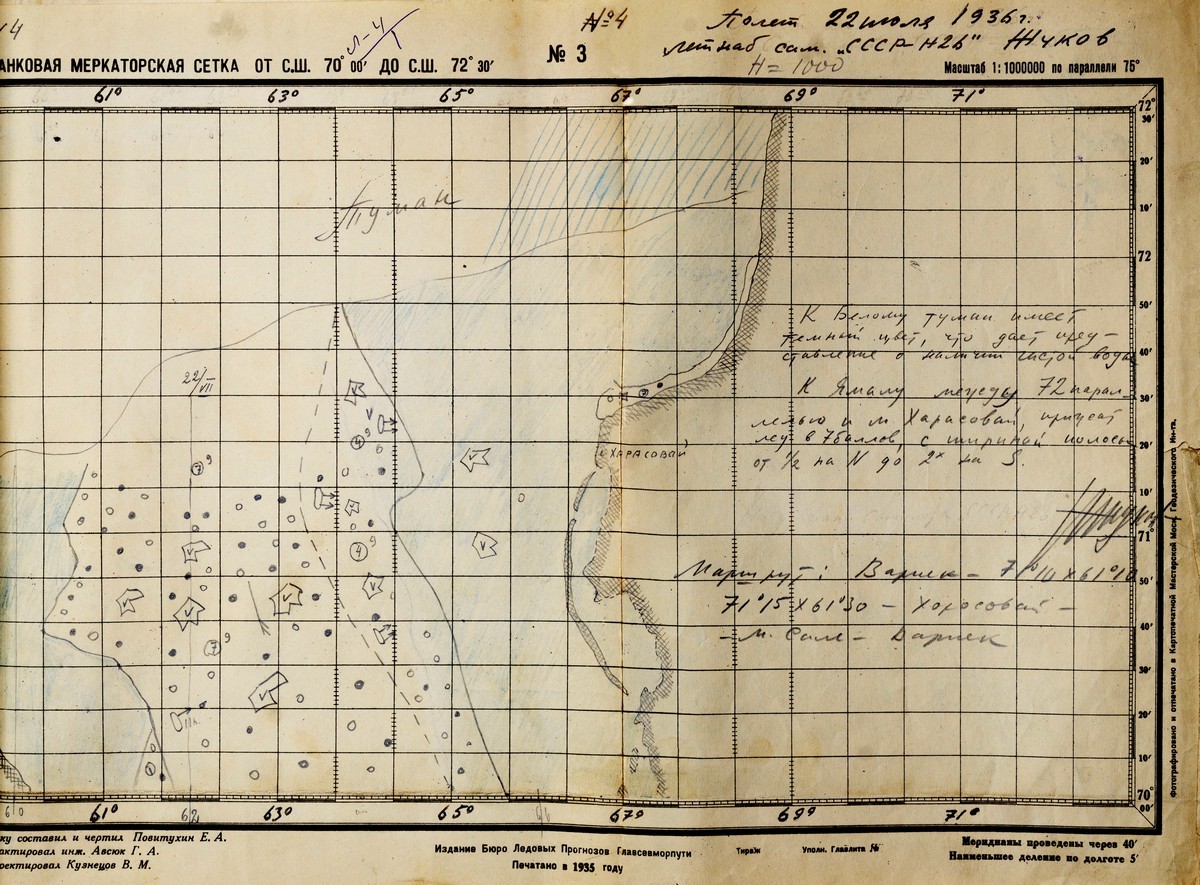 14
№4
Полет 22 июля 1936 г.
Летнаб сам. „СССР-Н26" Жуков
Н = 1000
Л-4
АНКОВАЯ МЕРКАТОРСКАЯ СЕТКА ОТ С.Ш. 70° 00' ДО С.Ш. 72° 30'
№ 3
Масштаб 1:1000000 по параллели 75°
61° 63° 65° 67° 69° 71°
72°
30'
20'
10'
72
50'
40'
30'
20'
10'
71°
50'
40'
30'
20'
10'
70°
00'
Туман
22/VII
7 9
4 9
4 9
7 9
ХАРАСОВАЙ
К Белому туман имеет
темный цвет, что дает пред-
ставление о наличии чистой воды
К Ямалу между 72 парал-
лелью и м Харасовай, прижат
лед в 7 баллов, с шириной полосы
от 1/2 на N до 2х на S.
Маршрут: Варнек – 71°10 x 61°10
71°15 x 61°30 – Харосовай –
– м. Сале – Варнек
61° 63° 65° 67° 69° 71°
ку составил и чертил Повитухин Е. А.
актировал инж. Авсюк Г. А.
ректировал Кузнецов В. М.
Издание Бюро Ледовых Прогнозов Главсевморпути
Печатано в 1935 году
Тираж
Уполн. Главлита №
Меридианы проведены через 40'
Наименьшее деление по долготе 5'
Фотографировано и отпечатано в Картопечатной Мастерской Моск. Геодезического Ин-та.